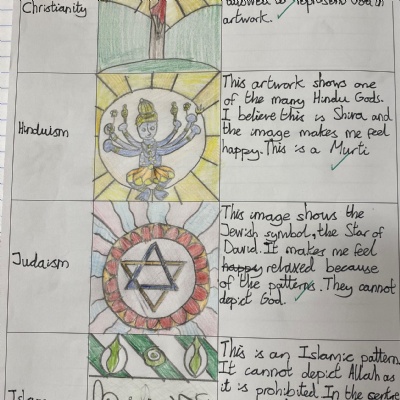 Christianity
allowed to represent God in
artwork.
Hinduism
This artwork shows one
of the many Hindu Gods.
I believe this is Shiva and
the image makes me feel
happy. This is a Murti
Judaism
This image shows the
Jewish symbol, the Star of
David. It makes me feel
happy relaxed because
of the patterns. They cannot
depict God.
Islam
This is an Islamic pattern.
It cannot depict Allah as
it is prohibited. In the centre